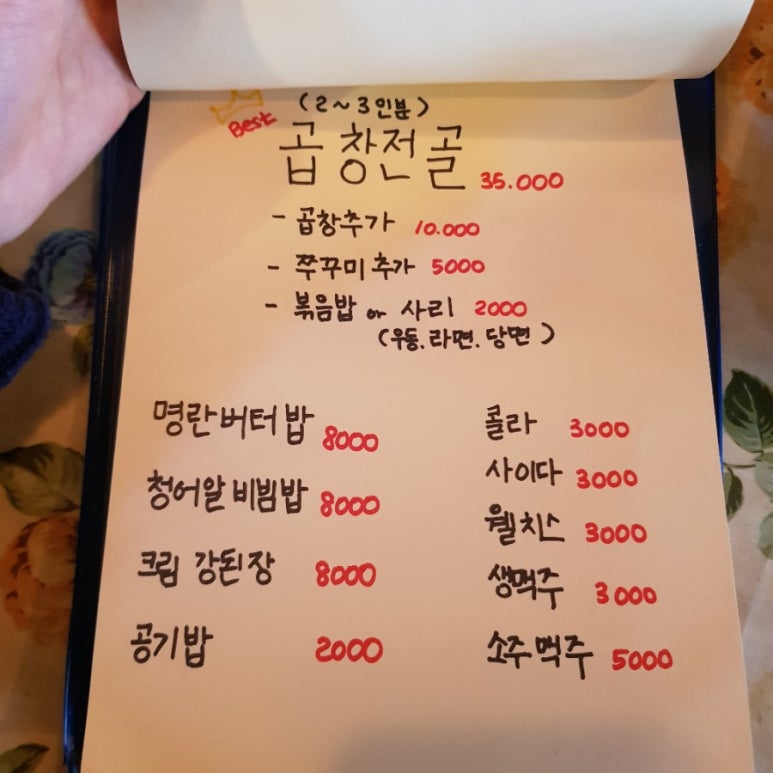 (2~3인분)
Best
곱창전골 35.000
- 곱창추가 10.000
- 쭈꾸미추가 5000
- 볶음밥 or 사리 2000
(우동.라면.당면)
명란버터밥 8000
청어알비빔밥 8000
크림 강된장 8000
공기밥 2000
콜라 3000
사이다 3000
웰치스 3000
생맥주 3000
소주맥주 5000